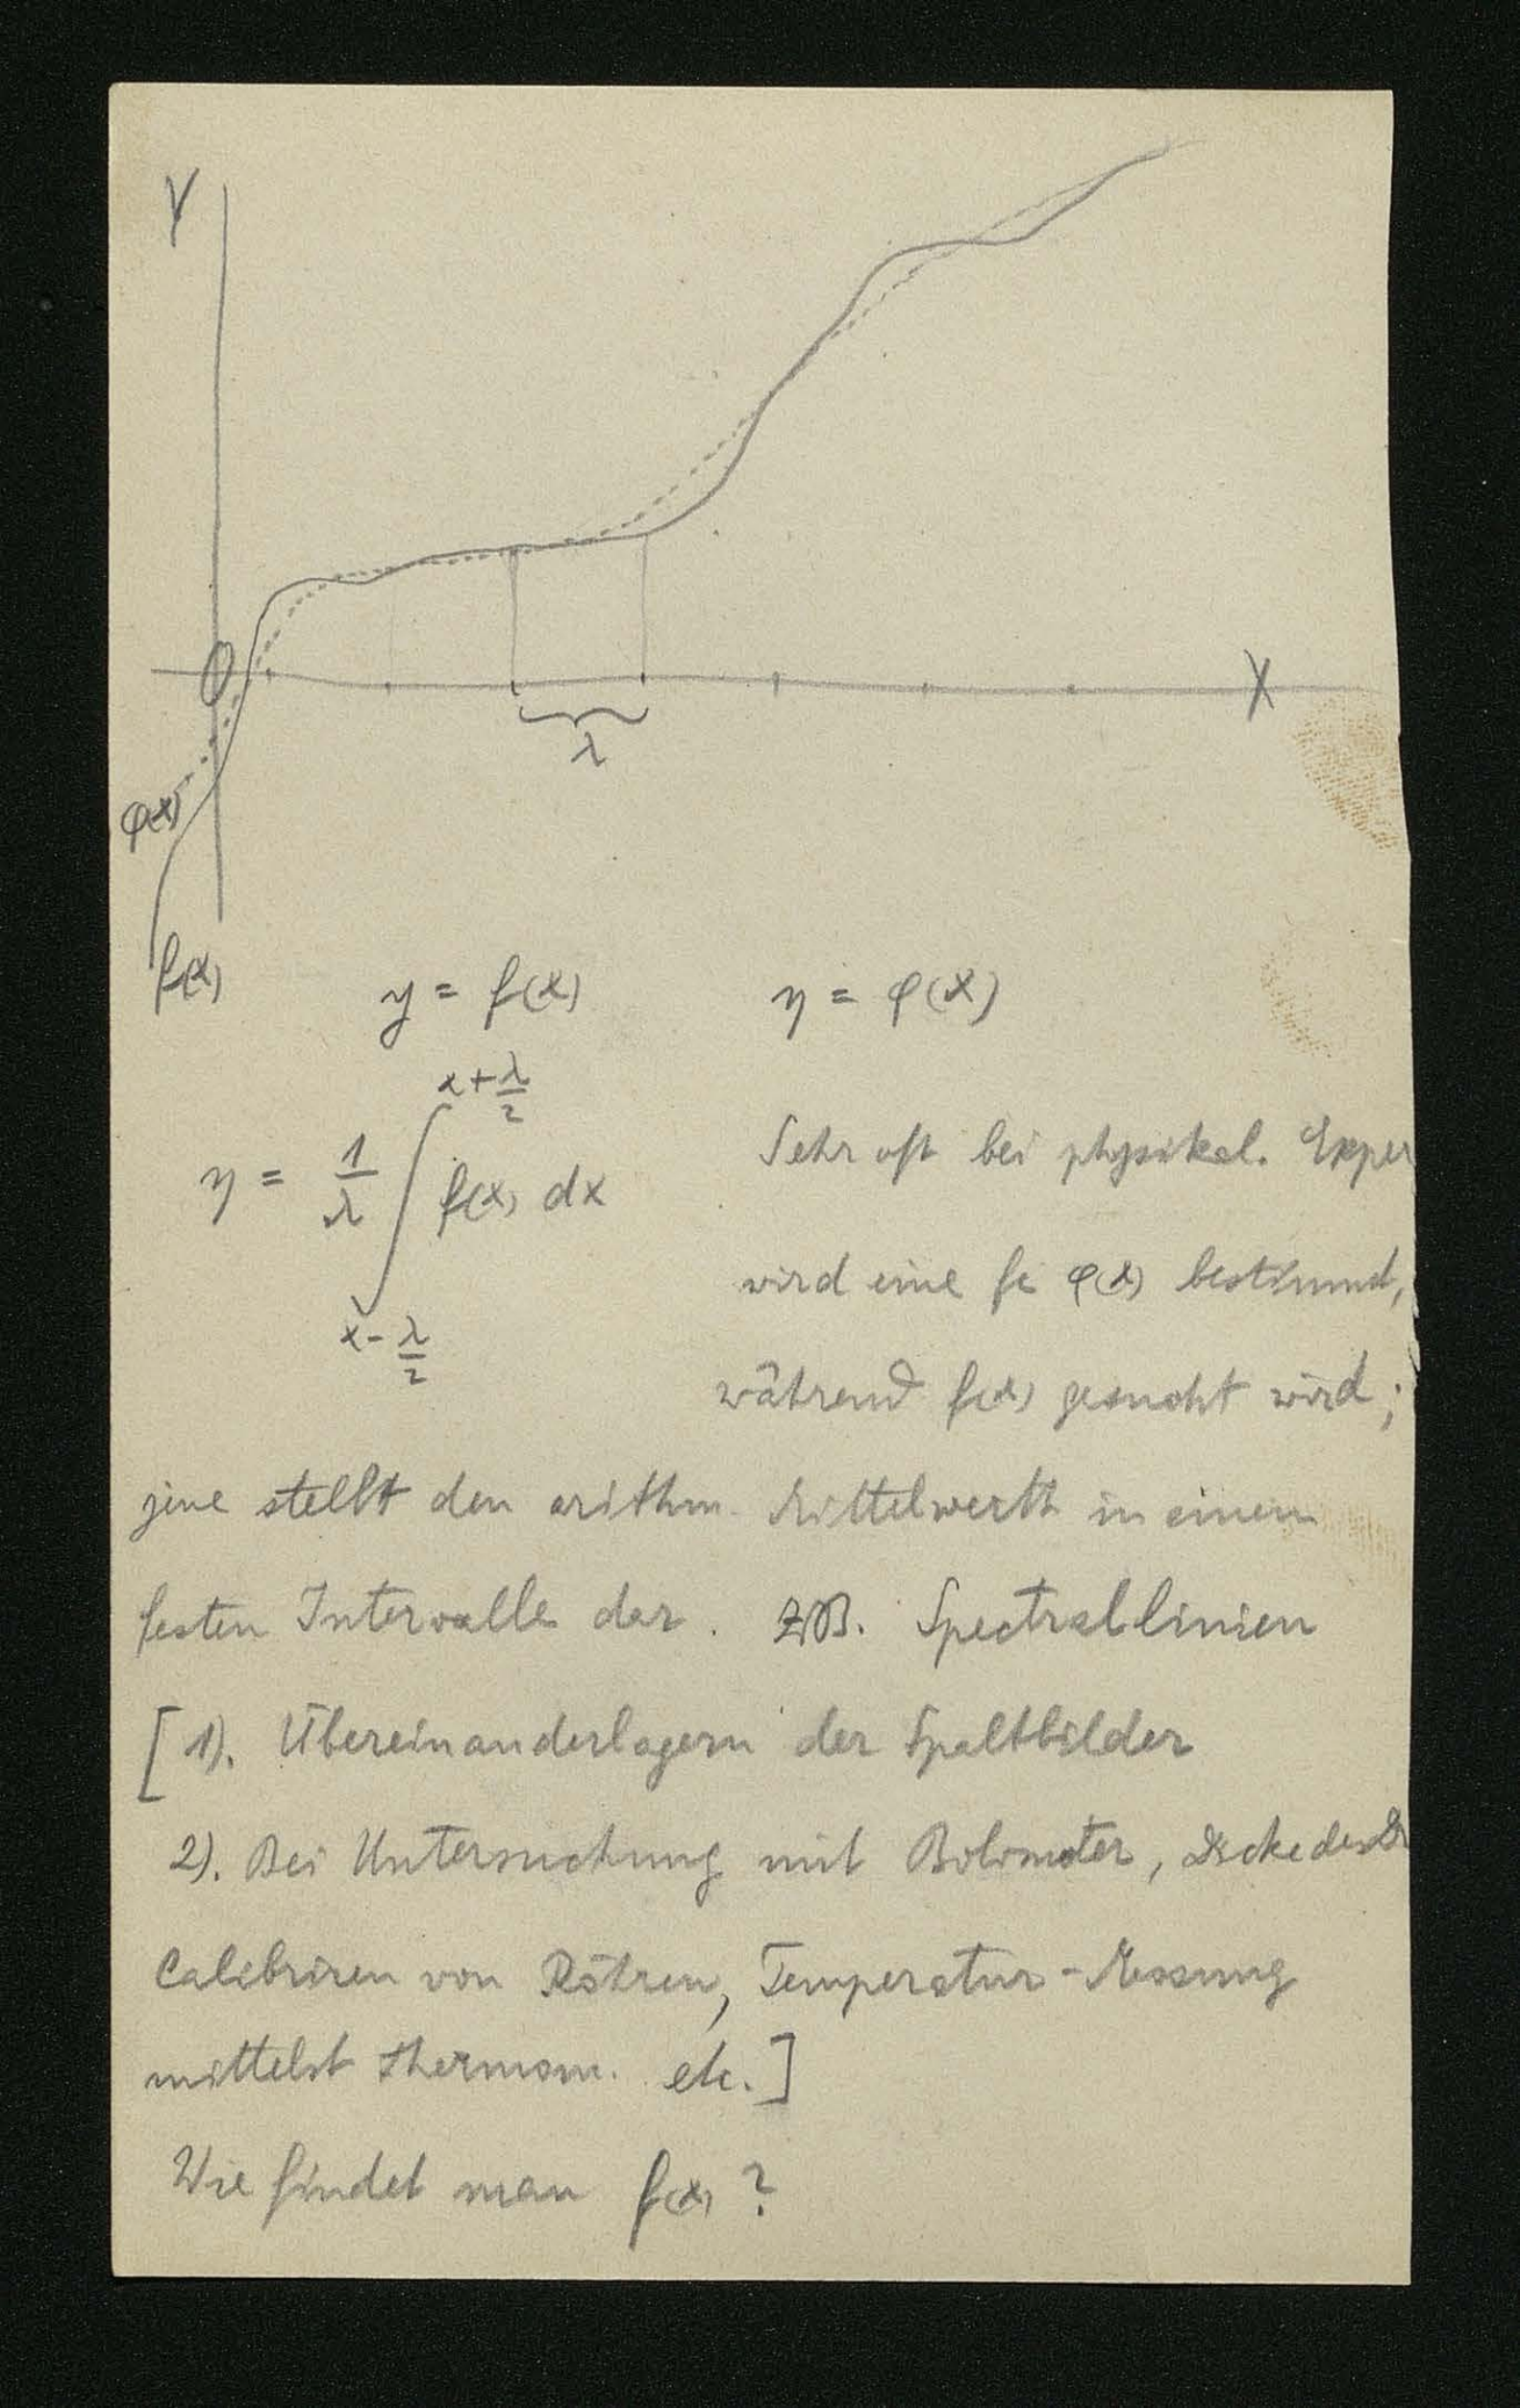 Y
O
X
λ
φ(x)
f(x)
y = f(x)
η = φ(x)
η = 1/λ ∫ f(x) dx
x+λ/2
x-λ/2
Sehr oft bei physikal. Exper
wird eine φ(x) bestimmt,
während f(x) gesucht wird;
jene stellt den arithm. Mittelwerth in einem
festen Intervalle dar. z.B. Spectrallinien
[1). Übereinanderlagern der Spaltbilder
2). Bei Untersuchung mit Bolometer, Dicke des Dr
Calibriren von Röhren, Temperatur-Messung
mittelst Thermom. etc.]
Wie findet man f(x)?